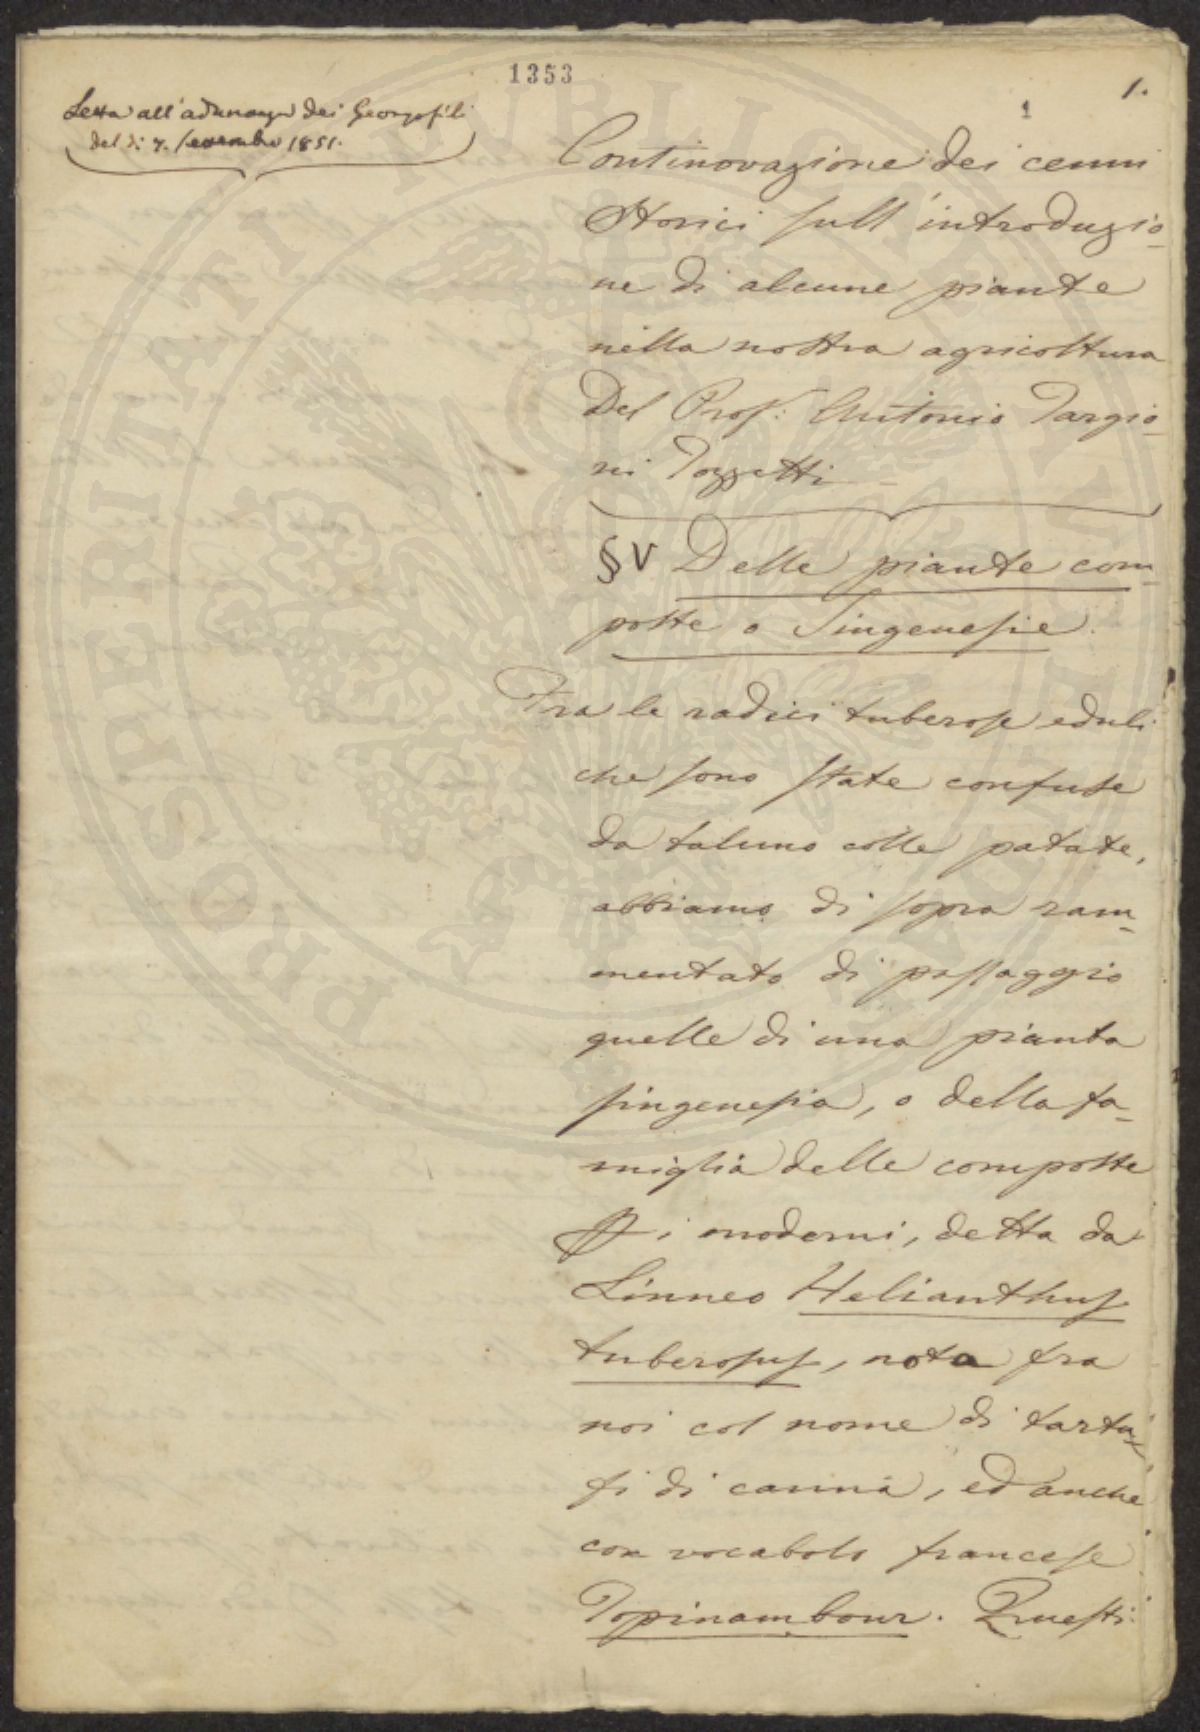 1353
1.
1
Letta all'adunanza dei Georgofili
del dì 7. Settembre 1851.
Continovazione dei cenni
Storici sull'introduzio-
ne di alcune piante
nella nostra agricoltura
Del Prof: Antonio Targio-
ni Tozzetti
§ V Delle piante com-
poste o Singenesie.
Tra le radici tuberose eduli
che sono state confuse
da taluno colle patate,
abbiamo di sopra ram-
mentato di passaggio
quelle di una pianta
singenesia, o della fa-
miglia delle composte
pi moderni, detta da
Linneo Helianthus
tuberosus, nota fra
noi col nome di tartu-
fi di canna, ed anche
con vocabolo francese
Topinambour. Questi
PROSPERITATI PUBLICAE AUGENDAE